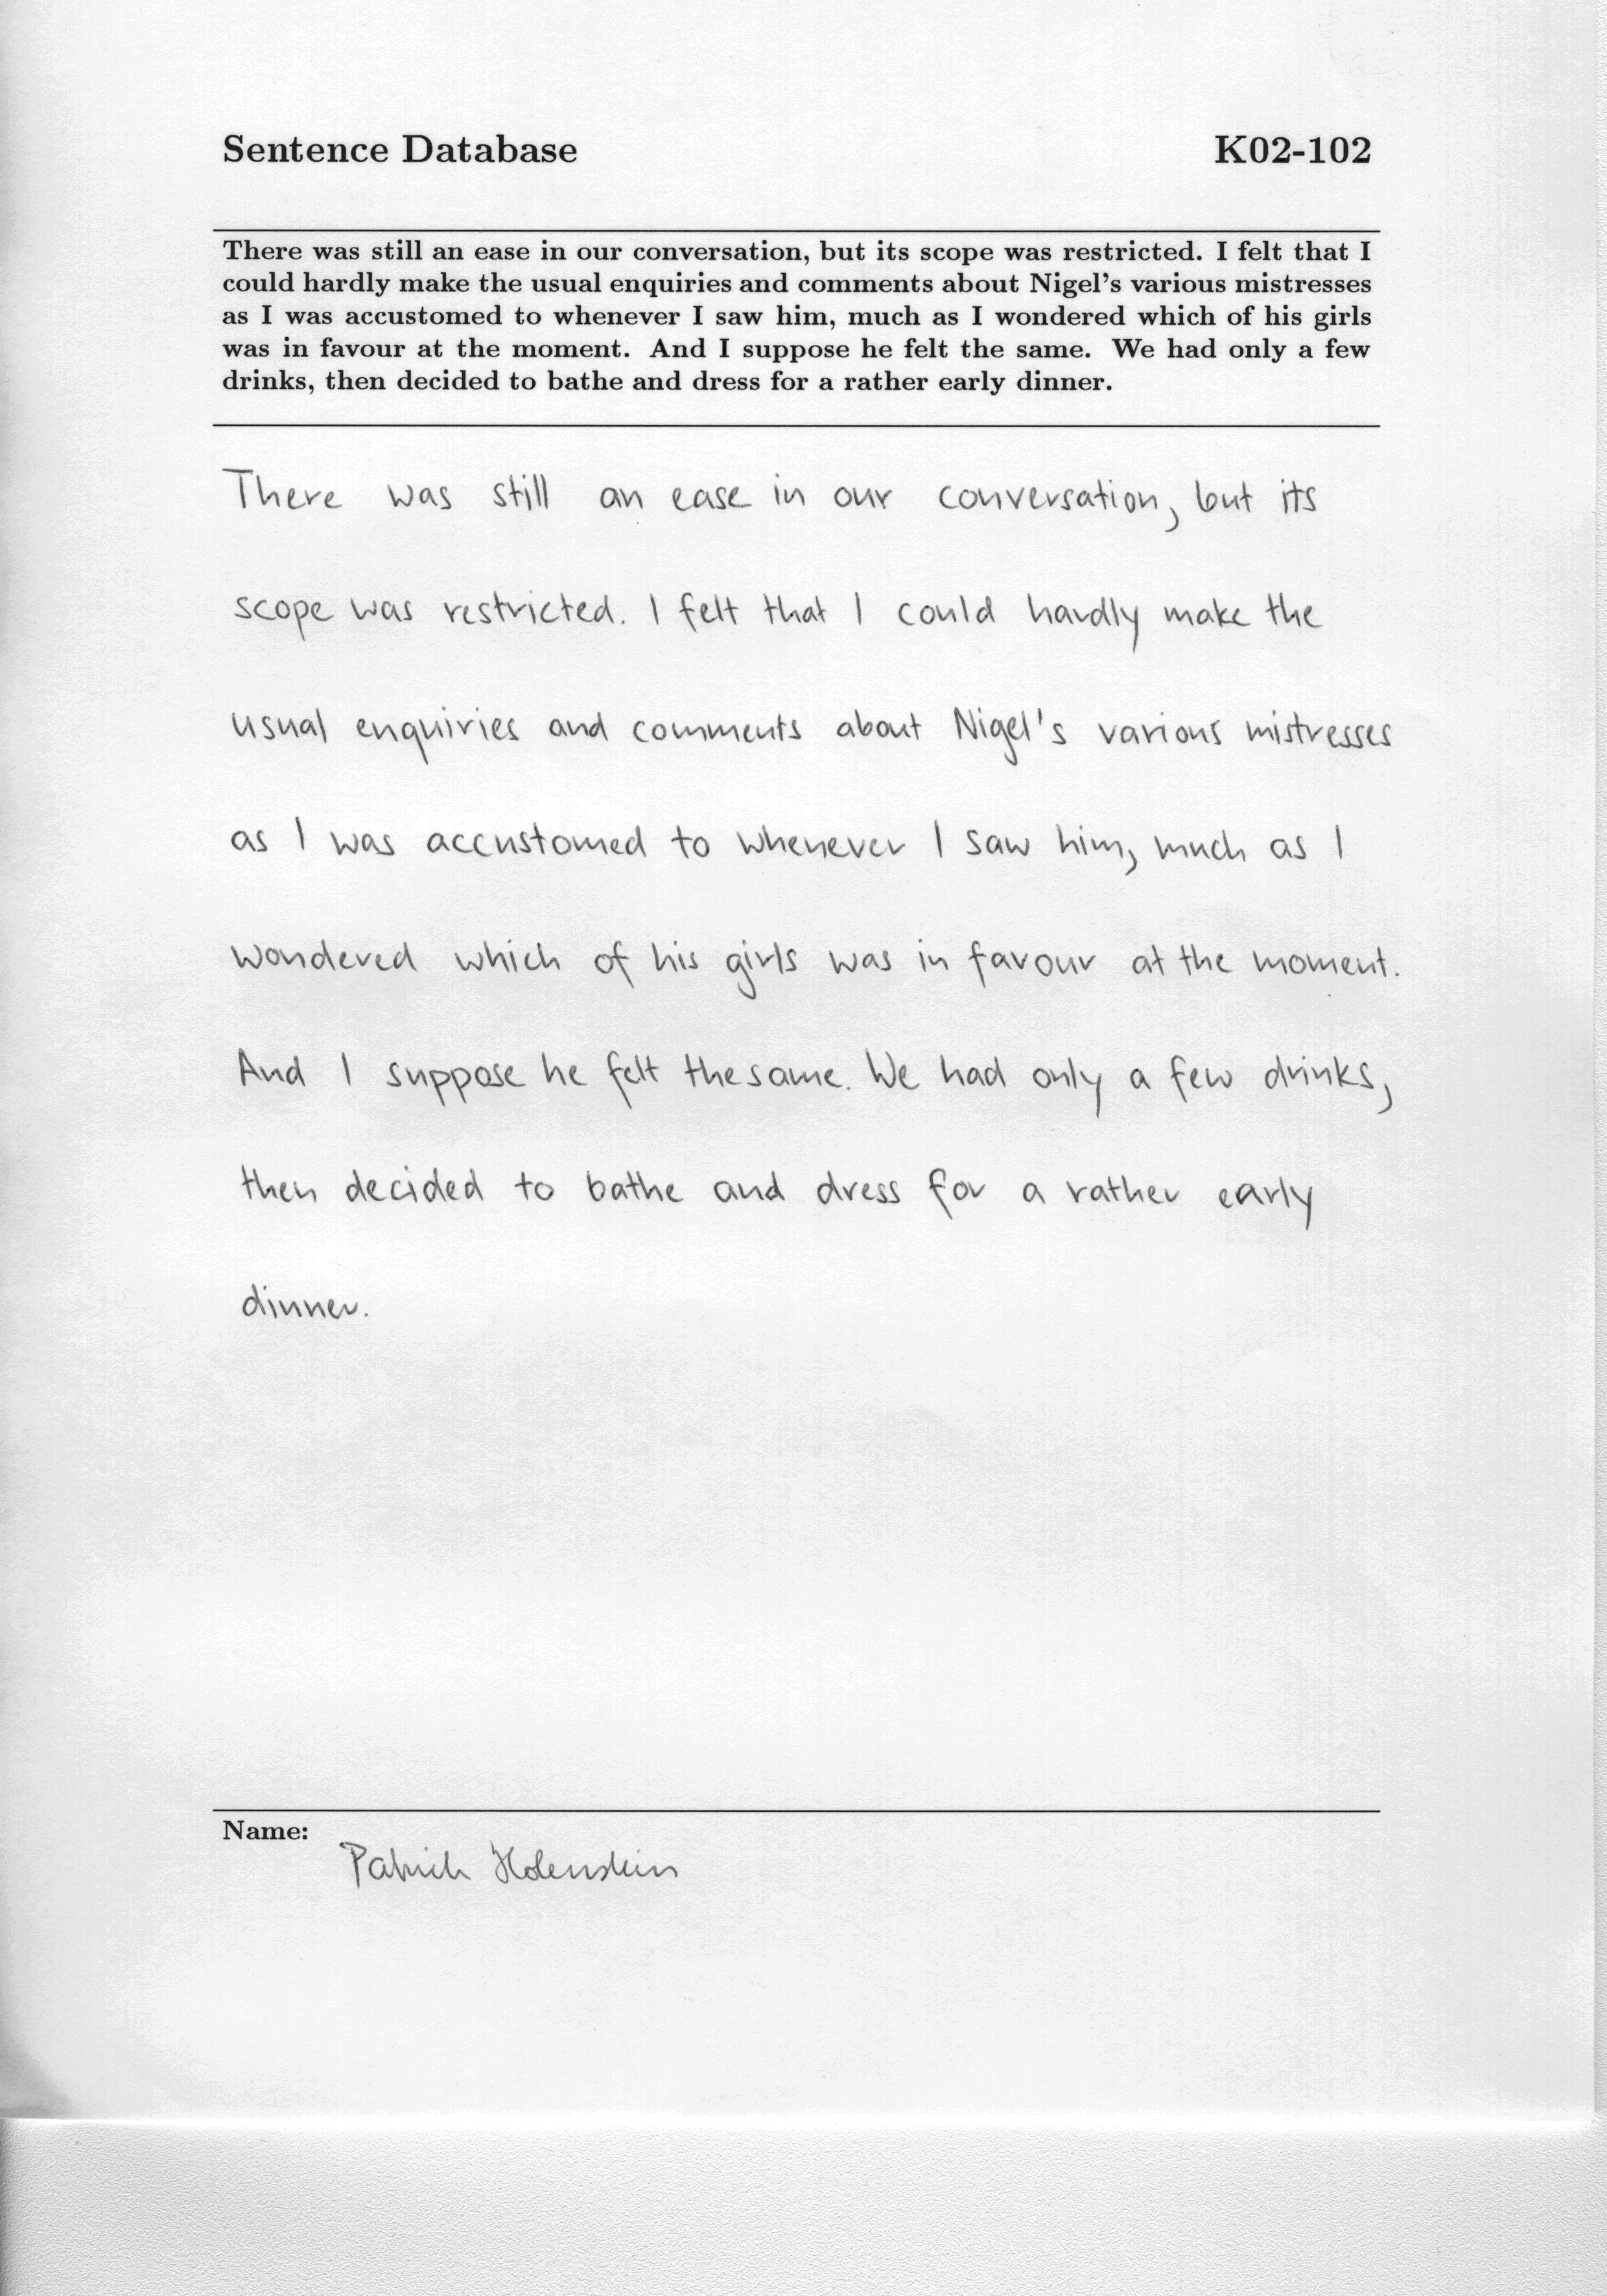 Sentence Database K02-102
There was still an ease in our conversation, but its scope was restricted. I felt that I
could hardly make the usual enquiries and comments about Nigel's various mistresses
as I was accustomed to whenever I saw him, much as I wondered which of his girls
was in favour at the moment. And I suppose he felt the same. We had only a few
drinks, then decided to bathe and dress for a rather early dinner.
There was still an ease in our conversation, but its
scope was restricted. I felt that I could hardly make the
usual enquiries and comments about Nigel's various mistresses
as I was accustomed to whenever I saw him, much as I
wondered which of his girls was in favour at the moment.
And I suppose he felt the same. We had only a few drinks,
then decided to bathe and dress for a rather early
dinner.
Name:
Patrick Holenstein